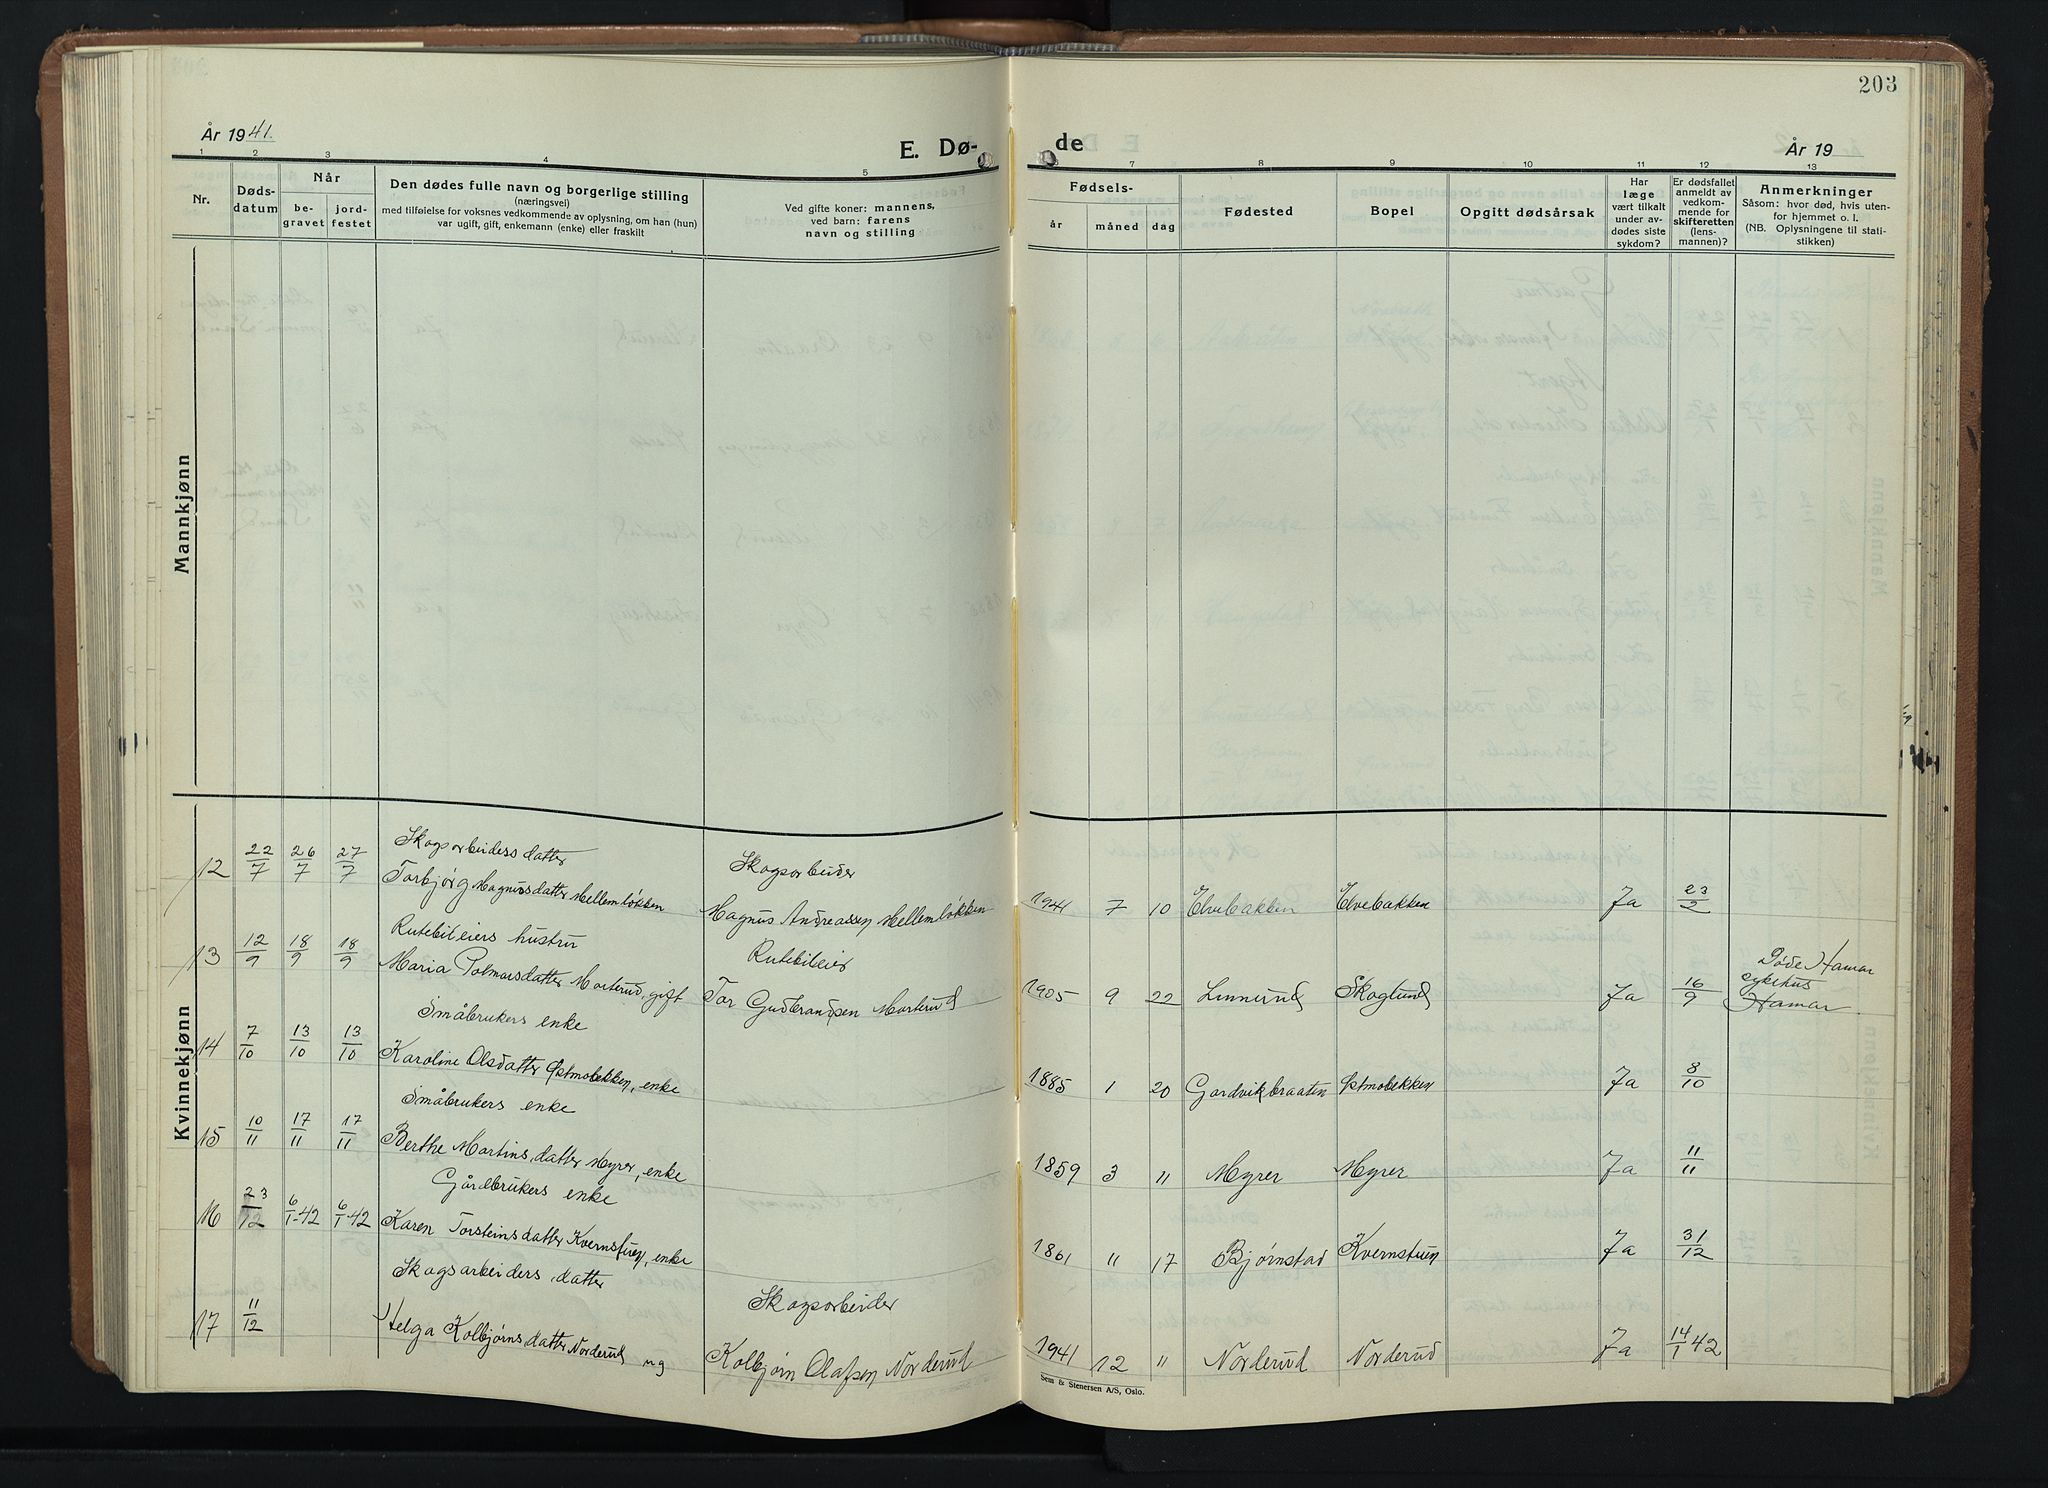 203
År 1941.
E. Dø-
de
År 19
1 2 3 4 5
6 7 8 9 10 11 12 13
Nr.
Døds-
datum
Når
be-
gravet
jord-
festet
Den dødes fulle navn og borgerlige stilling
(næringsvei)
med tilføielse for voksnes vedkommende av oplysning, om han (hun)
var ugift, gift, enkemann (enke) eller fraskilt
Ved gifte koner: mannens,
ved barn: farens
navn og stilling
Fødsels-
år måned dag
Fødested
Bopel
Opgitt dødsårsak
Har
læge
vært tilkalt
under av-
dødes siste
sykdom?
Er dødsfallet
anmeldt av
vedkom-
mende for
skifteretten
(lens-
mannen)?
Anmerkninger
Såsom: hvor død, hvis uten-
for hjemmet o. l.
(NB. Oplysningene til stati-
stikken)
Mannkjønn
Kvinnekjønn
Skogsarbeiders datter Skogsarbeider
12 22/7 26/7 27/7 Torbjørg Magnusdatter Mellemløkken Magnus Andreassen Mellemløkken 1941 7 10 Elvebakken Elvebakken Ja 23/2
Rutebileiers hustru Rutebileier
13 12/9 18/9 18/9 Maria Polmarsdatter Morterud, gift Tor Gudbrandsen Morterud 1905 9 22 Linnerud Skoglund Ja 16/9 Døde Hamar
sykehus
Hamar.
Småbrukers enke
14 7/10 13/10 13/10 Karoline Olsdatter Østmobekken, enke 1885 1 20 Gardvikbraaten Østmobekken Ja 8/10
Småbrukers enke
15 10/11 17/11 17/11 Berthe Martinsdatter Myrer, enke 1859 3 11 Myrer Myrer Ja 11/11
Gårdbrukers enke
16 23/12 6/1-42 6/1-42 Karen Torsteinsdatter Kvernstuen, enke 1861 11 17 Bjørnstad Kvernstuen Ja 31/12
Skogsarbeiders datter Skogsarbeider
17 11/12 Helga Kolbjørnsdatter Norderud ug Kolbjørn Olafsen Norderud 1941 12 11 Norderud Norderud Ja 14/1 42
Sem & Stenersen A/S, Oslo.